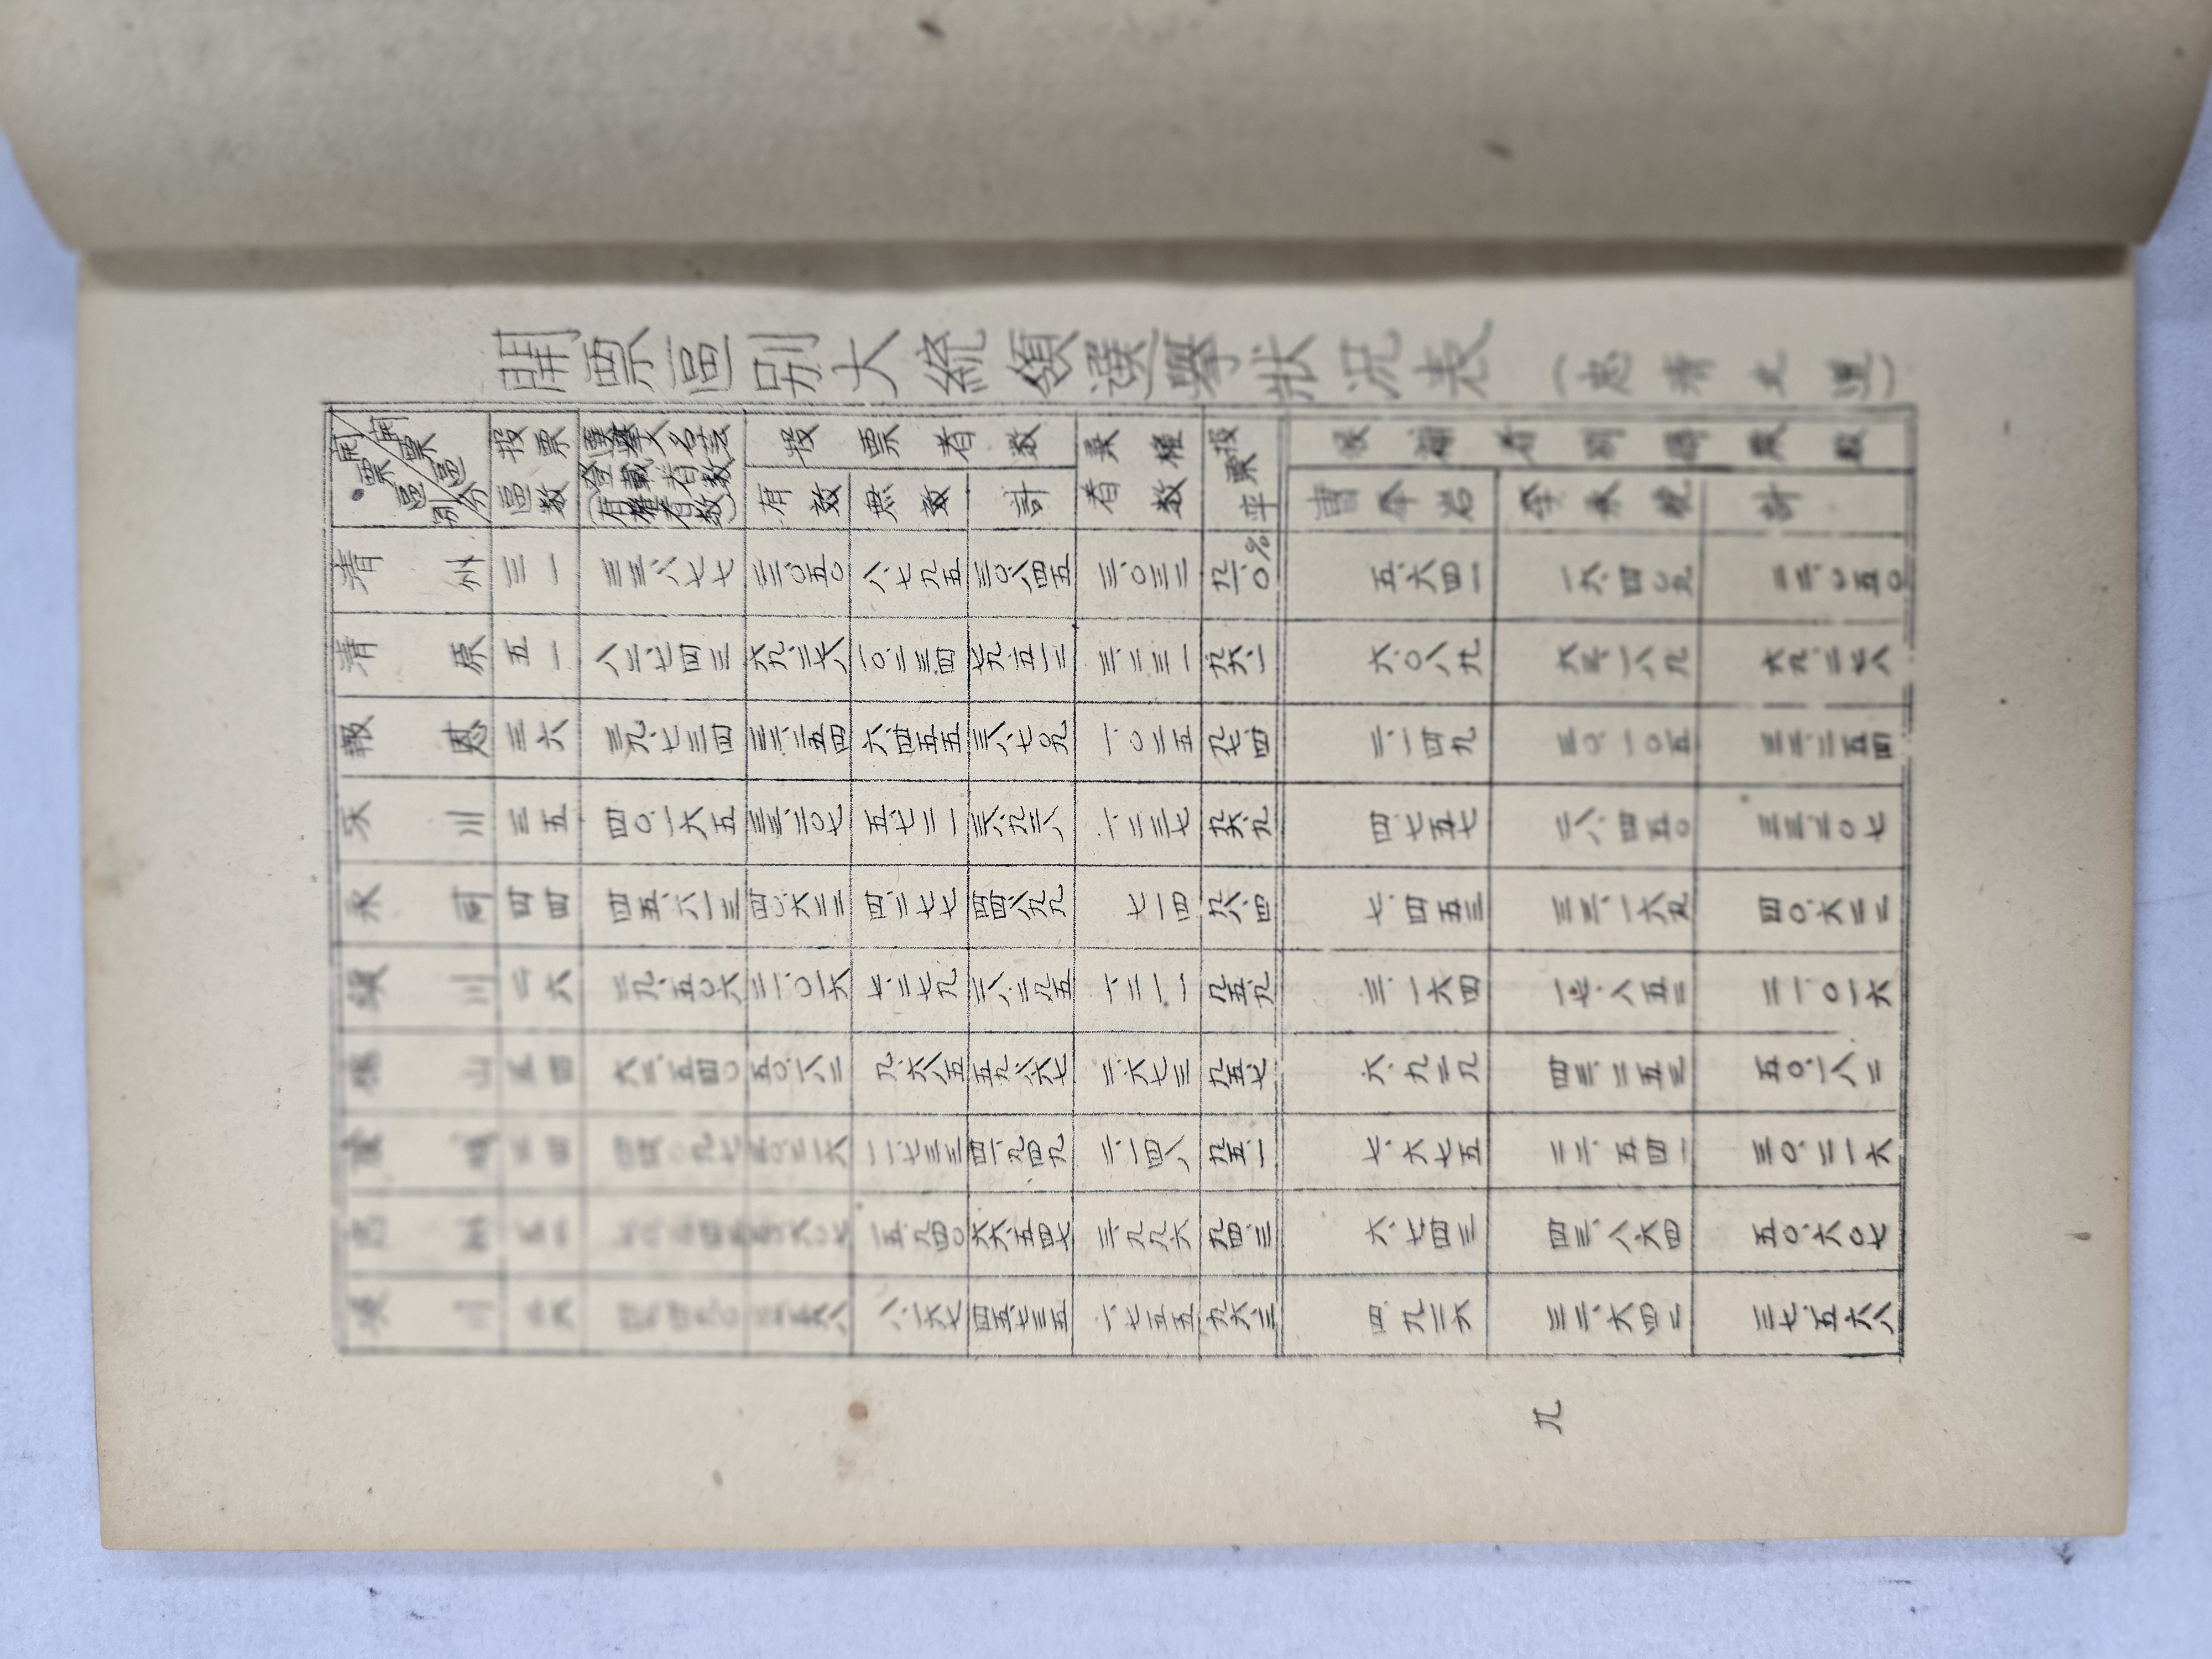 開票區別大統領選擧狀況表 (忠淸北道)
開票區分 開票區別 投票區數 選擧人名法登載者數(有權者數) 投票者數 棄權者數 投票率 候補者別得票數
有效 無效 計 曺奉岩 李承晩 計
淸州 三一 三三、八七七 二二、〇五〇 八、七九五 三〇、八四五 三、〇三二 九一、〇% 五、六四一 一六、四〇九 二二、〇五〇
淸原 五一 八二、七四三 六九、二七八 一〇、二三四 七九、五一二 三、二三一 九六、一 六、〇八九 六三、一八九 六九、二七八
報恩 三六 三九、七三四 三二、二五四 六、四五五 三八、七〇九 一、〇二五 九七、四 二、一四九 三〇、一〇五 三二、二五四
沃川 三五 四〇、一六五 三三、二〇七 五、七二一 三八、九二八 一、二三七 九六、九 四、七五七 二八、四五〇 三三、二〇七
永同 四四 四五、六一三 四〇、六二二 四、二七七 四四、八九九 七一四 九八、四 七、四五三 三三、一六九 四〇、六二二
鎭川 二六 二九、五〇六 二一、〇一六 七、二七九 二八、二九五 一、二一一 九五、九 三、一六四 一七、八五二 二一、〇一六
槐山 五四 六二、五四〇 五〇、一八二 九、六八五 五九、八六七 二、六七三 九五、七 六、九二九 四三、二五三 五〇、一八二
陰城 三四 四四、〇九七 三〇、二一六 一一、七三三 四一、九四九 二、一四八 九五、一 七、六七五 二二、五四一 三〇、二一六
忠州 五〇、六〇七 一五、九四〇 六六、五四七 三、九九六 九四、三 六、七四三 四三、八六四 五〇、六〇七
堤川 四七、四九〇 三七、五六八 八、一六七 四五、七三五 一、七五五 九六、三 四、九二六 三二、六四二 三七、五六八
九